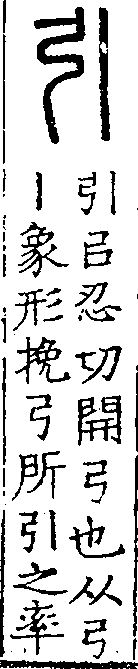 引
引㠯忍切開弓也从弓
丨象形挽弓所引之率